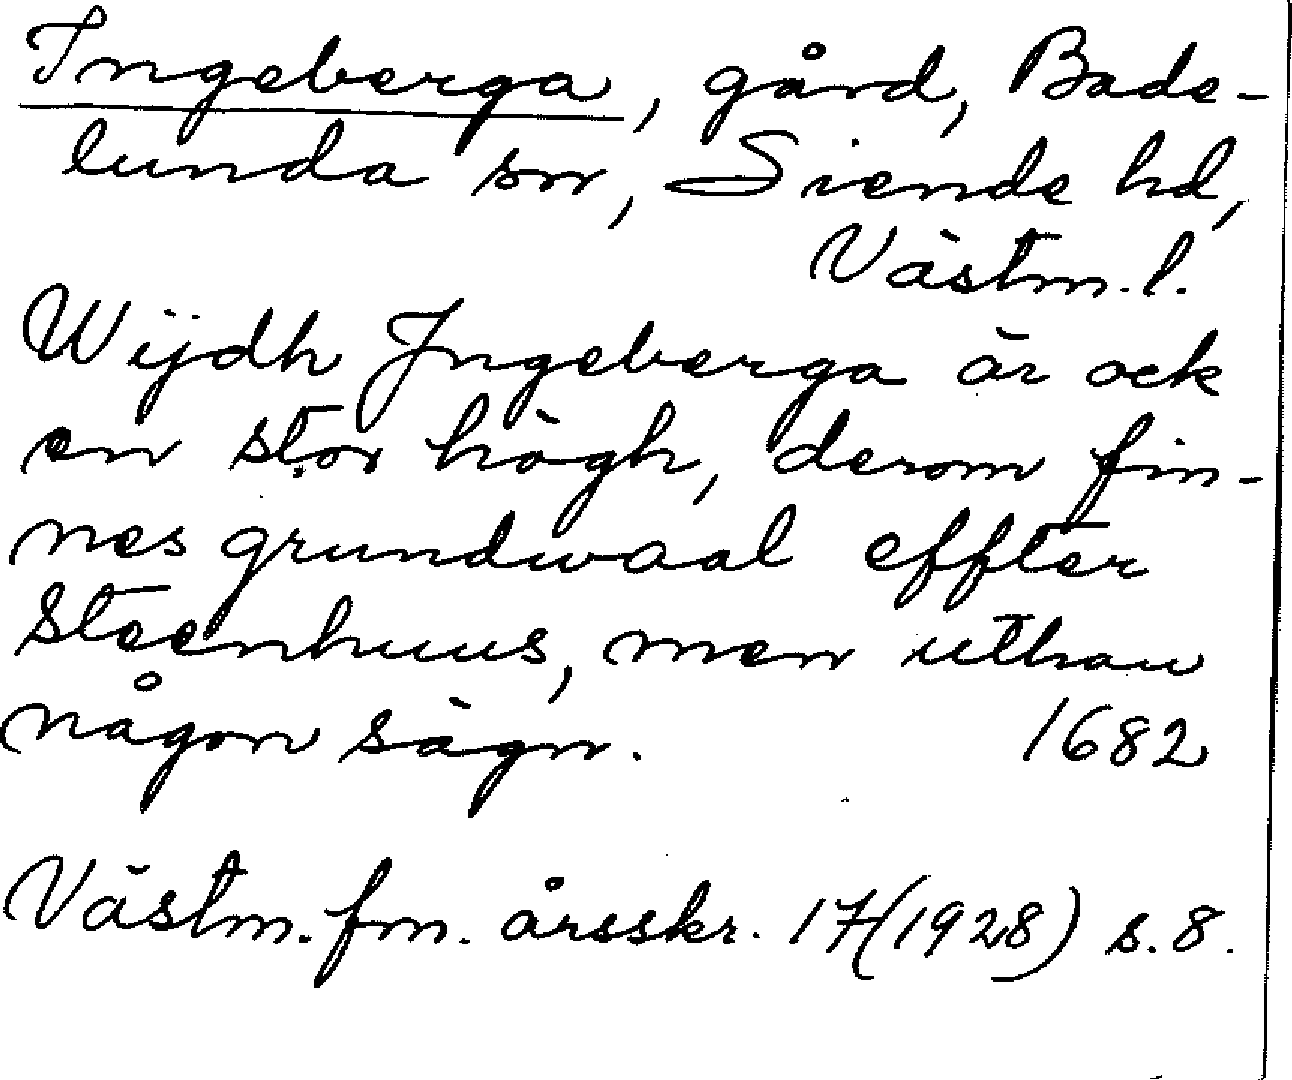 Ingeberga, gård, Bade-
lunda sn, Siende hd,
Västm. l.
Wijdh Ingeberga är ock
en stor högh, derom fin-
nes grundwaal effter
Steenhuus, men uthan
någon sägn. 1682
Västm. fm. årsskr. 17 (1928) s. 8.